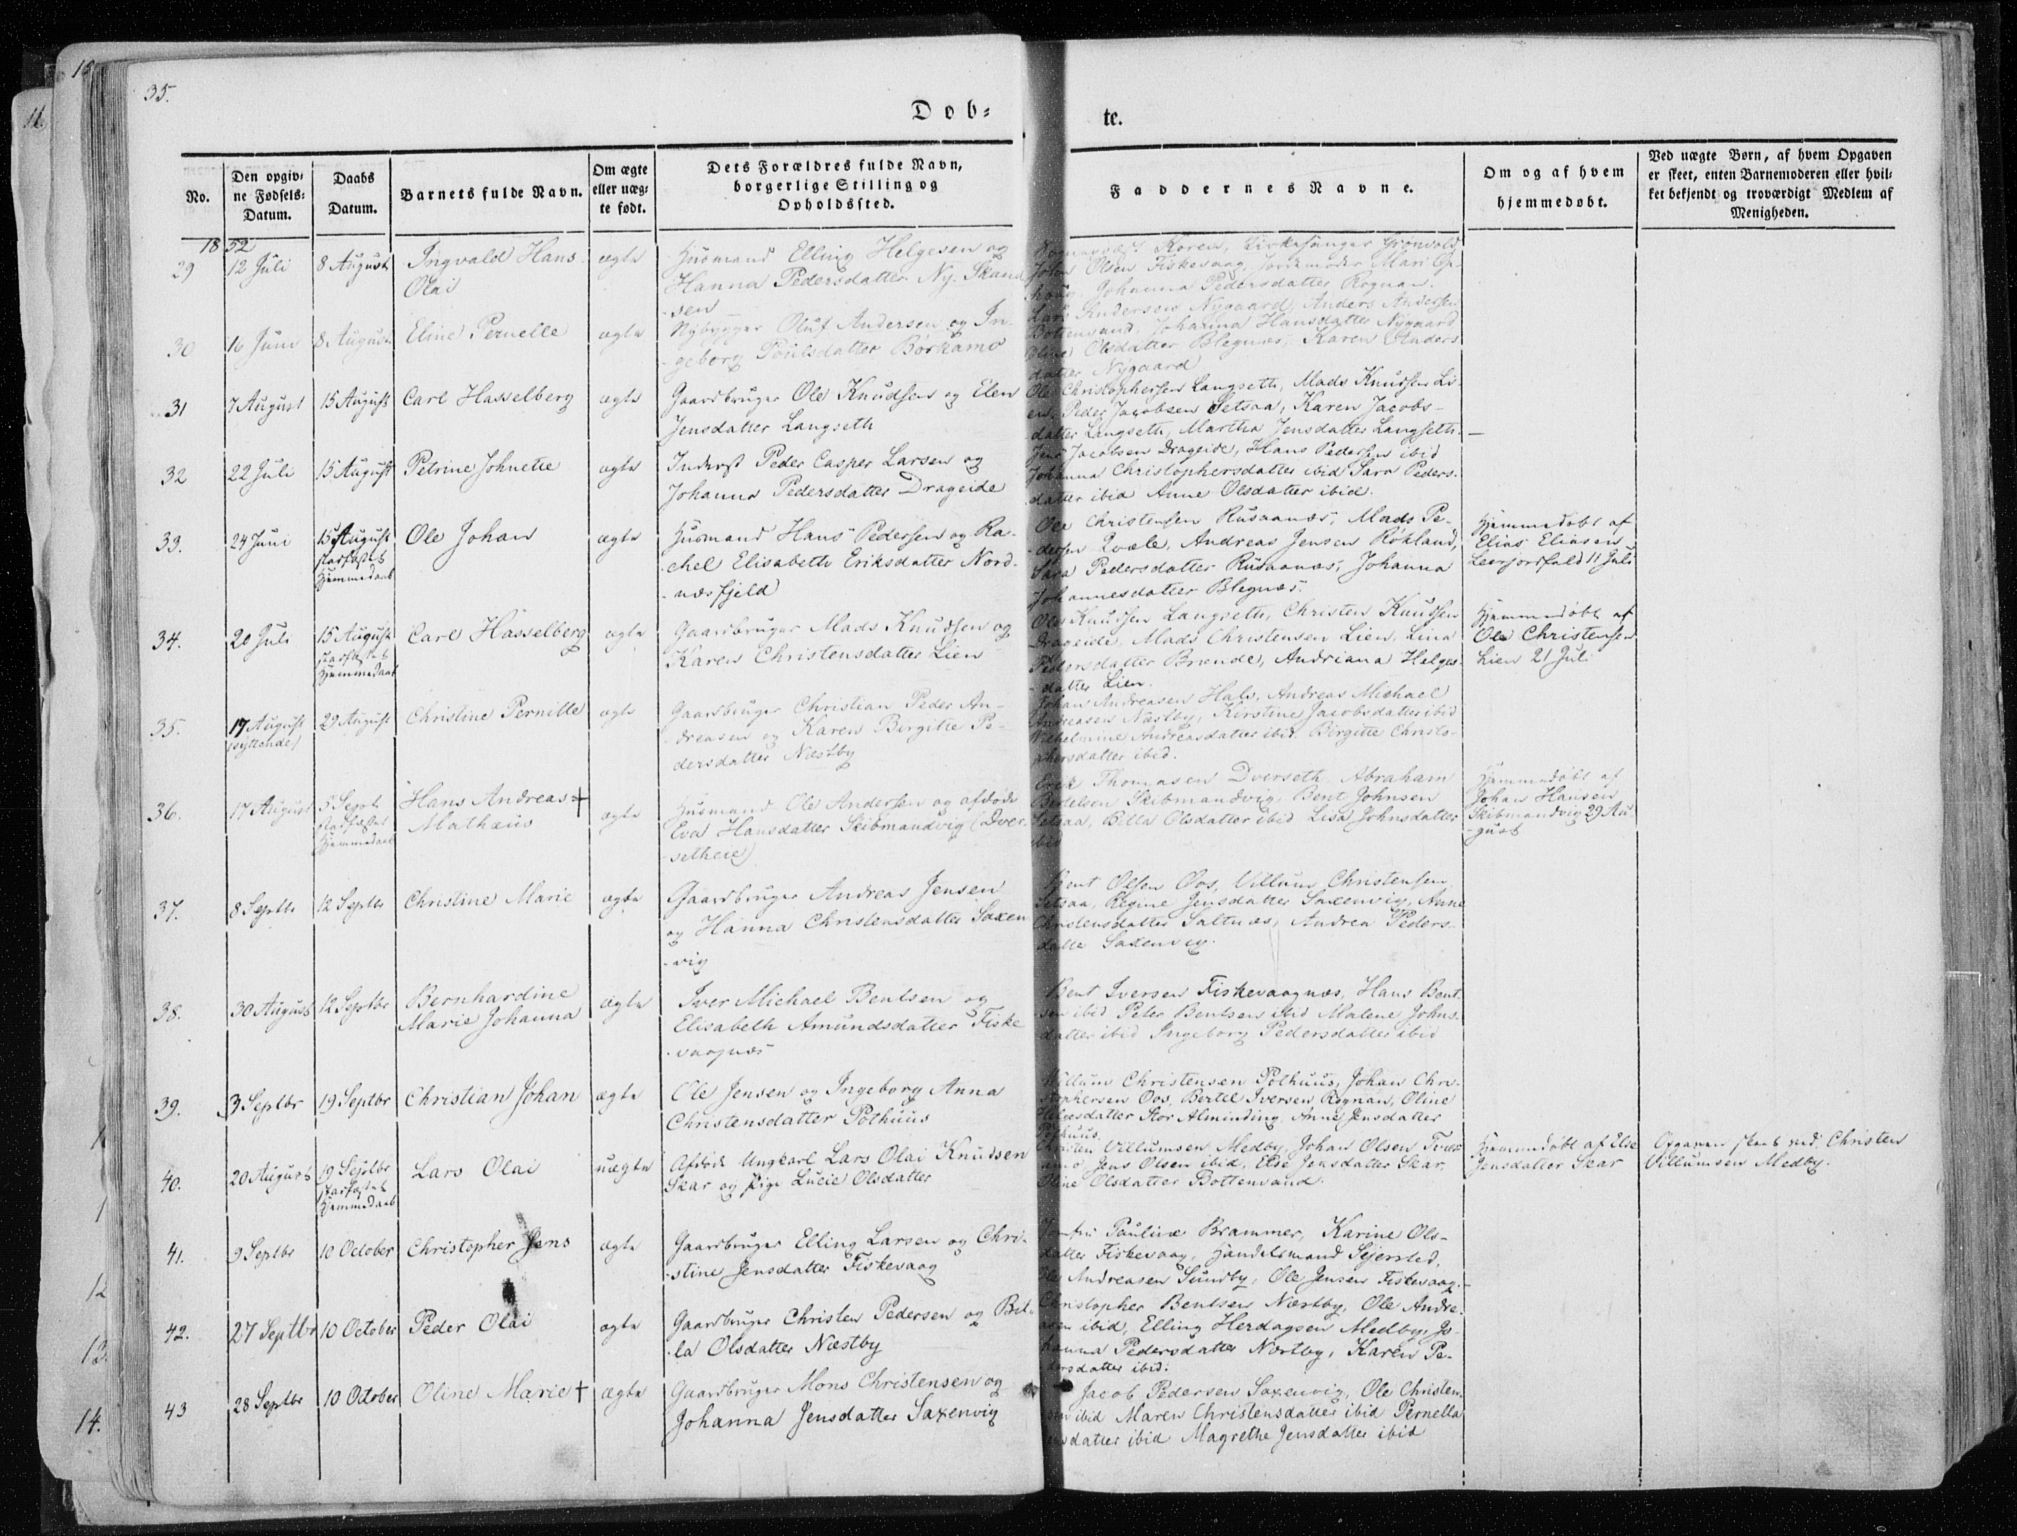 35.
Dob-
te.
No.
Den opgiv-
ne Fødsels-
Datum.
Daabs
Datum.
Barnets fulde Navn.
Om ægte
eller uæg-
te født.
Dets Forældres fulde Navn,
borgerlige Stilling og
Opholdssted.
Faddernes Navne.
Om og af hvem
hjemmedøbt.
Ved uægte Børn, af hvem Opgaven
er skeet, enten Barnemoderen eller hvil-
ket bekjendt og troværdigt Medlem af
Menigheden.
1852
29
12 Juli
8 August
Ingvald Hans
Olai
ægte
Huusmand Elling Helgesen og
Hanna Pedersdatter Ny. Skand
sen
Koren, Kirkesanger Grönvold
Olsen Fiskevaag, Jordemoder Mari
Johanna Pedersdatter Rognan.
30
16 Juni
8 August
Eline Pernelle
ægte
Nybygger Oluf Andersen og In-
geborg Poulsdatter Borkamo
Lars Andersen Nygaard, Anders Andersen
Bottenvand, Johanna Hansdatter Nygaard
Oline Olsdatter Blegnæs, Karen Anders
datter Nygaard
31
7 August
15 August
Carl Hasselberg
ægte
Gaardbruger Ole Knudsen og Elen
Jensdatter Langseth
Ole Christophersen Langseth, Mads Knudsen Li-
en, Peder Jacobsen Setsaa, Karen Jacobs-
datter Langseth, Martha Jensdatter Langseth
32
22 Juli
15 August
Petrine Johnette
ægte
Inderst Peder Casper Larsen og
Johanna Pedersdatter Drageide
Jens Jacobsen Drageide, Hans Pedersen ibid
Johanna Christophersdatter ibid Sara Peders-
datter ibid Anne Olsdatter ibid.
33.
24 Juni
15 August
stadfæstet
Hjemmedaab
Ole Johan
ægte
Huusmand Hans Pedersen og Ra-
chel Elisabeth Eriksdatter Nord-
næsfjeld
Ole Christensen Rusaanæs, Mads Pe-
dersen Qvæle, Andreas Jensen Røkland,
Sara Pedersdatter Rusaanæs, Johanna
Johannesdatter Blegnæs.
Hjemmedøbt af
Elias Eliasen
Leerjordfald 11 Juli
34.
20 Juli
15 August
stadfæstet
Hjemmedaab
Carl Hasselberg
ægte
Gaardbruger Mads Knudsen og
Karen Christensdatter Lien
Ole Knudsen Langseth, Christen Knudsen
Drageide, Mads Christensen Lien, Lina
Pedersdatter Brende, Andriana Helges-
datter Lien.
Hjemmedøbt af
Ole Christensen
Lien 21 Juli
35.
17 August
(syttende)
29 August
Christine Pernille
ægte
Gaardbruger Christian Peder An-
dreasen og Karen Birgitte Pe-
dersdatter Næstby
Johan Andreasen Hals, Andreas Michael
Andreasen Næstby, Kirstine Jacobsdatter ibid
Wilhelmine Andreasdatter ibid. Birgitte Christo-
phersdatter ibid.
36.
17 August
5 Sept
stadfæstet
Hjemmedaab
Hans Andreas +
Mathæus
ægte
Huusmand Ole Andersen og afdøde
Eva Hansdatter Skibmandvig (Dver-
setheie)
Erek Thomasen Dverseth, Abraham
Bertelsen Skibmandvig, Bent Johnsen
Setsaa, Billa Olsdatter ibid Lisa Johnsdatter
ibid
Hjemmedøbt af
Johan Hansen
Skibmandvig 29 Au-
gust
37.
8 Septbr
12 Septbr
Christine Marie
ægte
Gaardbruger Andreas Jensen
og Hanna Christensdatter Saxen
vig
Bent Olsen Oos, Villum Christensen
Setsaa, Regine Jensdatter Saxenvig, Anne
Christensdatter Saltnæs, Andrea Peders-
datter Saxenvig.
38.
30 August
12 Septbr
Bernhardine
Marie Johanna
ægte
Iver Michael Bentsen og
Elisabeth Amundsdatter Fiske
vaagnæs
Bent Iversen Fiskevaagnæs, Hans Bent-
sen ibid Peter Bentsen ibid Malene Johns-
datter ibid Ingeborg Pedersdatter ibid
39.
3 Septbr
19 Septbr
Christian Johan
ægte
Ole Jensen og Ingeborg Anna
Christensdatter Pothuus
Villum Christensen Pothuus, Johan Chri-
stophersen Oos, Bertel Iversen Rognan, Oline
Helgesdatter Stor Alminding, Anne Jensdatter
Pothuus.
40.
20 August
19 Septbr
stadfæstet
Hjemmedaab
Lars Olai
uægte
Afdøde Ungkarl Lars Olai Knudsen
Skar og Pige Lucie Olsdatter
Christen Villumsen Medby, Johan Olsen
Jens Olsen ibid, Else Jensdatter Skar,
Oline Olsdatter Bottenvand.
Hjemmedøbt af Else
Jensdatter Skar
Opgaven skeet ved Christen
Villumsen Medby.
41.
9 Septbr
10 October
Christopher Jens
ægte
Gaardbruger Elling Larsen og Chri-
stine Jensdatter Fiskevaag
Jomfru Pauline Brammer, Karine Ols-
datter Fiskevaag, Handelsmand Sejersted,
Ole Andreasen Sundby, Ole Jensen Fiskevaag.
42.
27 Septbr
10 October
Peder Olai
ægte
Gaardbruger Christen Pedersen og Bil-
la Olsdatter Næstby
Christopher Bentsen Næstby, Ole Andre-
asen ibid, Elling Herdagsen Medby, Jo-
hanna Pedersdatter Næstby, Karen Pe-
dersdatter ibid.
43
28 Septbr
10 October
Oline Marie +
ægte
Gaardbruger Mons Christensen og
Johanna Jensdatter Saxenvig
Jacob Pedersen Saxenvig, Ole Christen-
sen ibid Maren Christensdatter ibid Pernella
Jensdatter ibid Magrethe Jensdatter ibid
11.
12
13.
14.